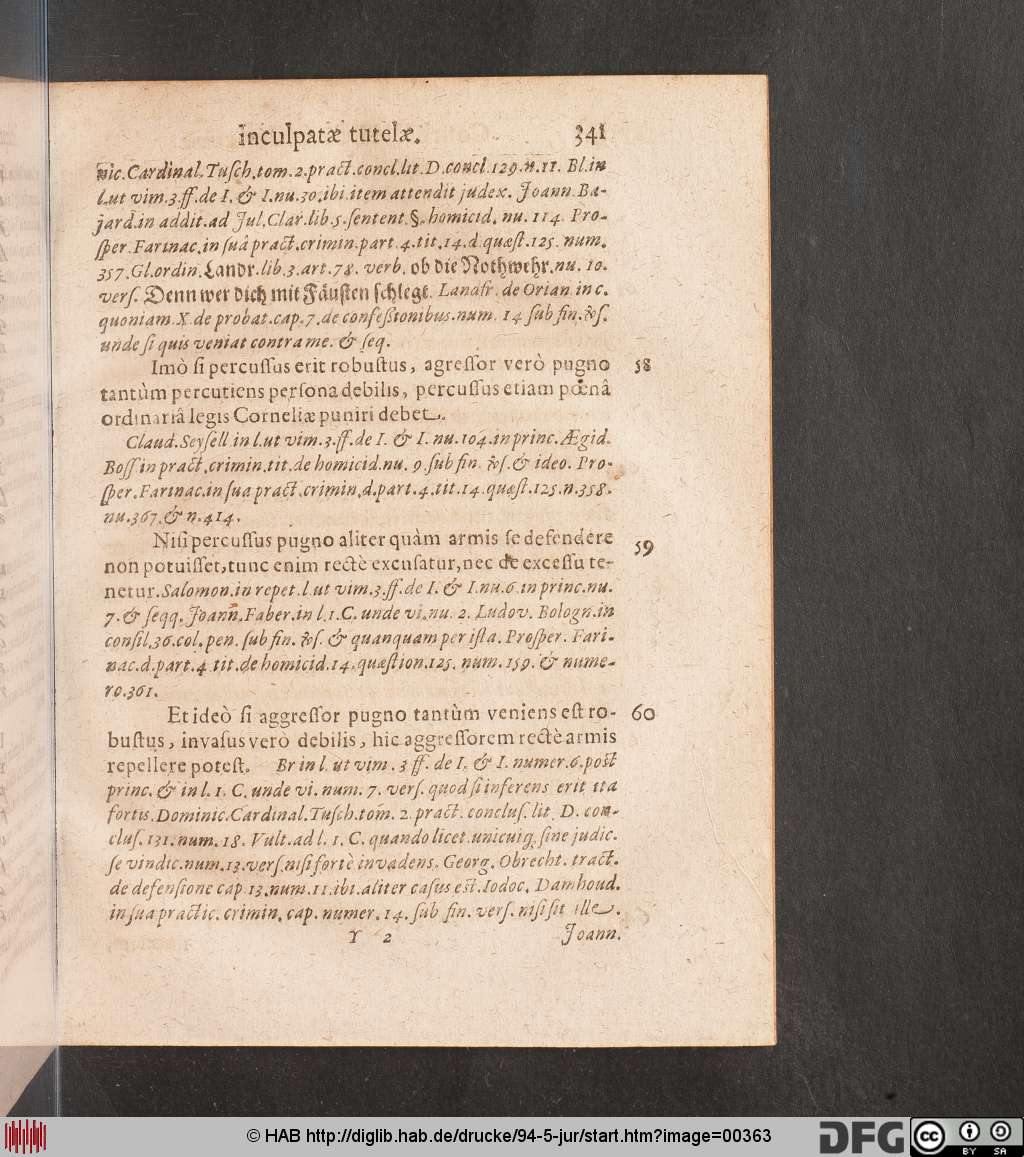 inculpatæ tutelæ. 341
nic. Cardinal. Tuſch. tom. 2. pract. concl. lit. D. concl. 129. n. 11. Bl. in
l. ut vim. 3. ff. de I. & I. nu. 30. ibi. item attendit judex. Joann. Ba-
jard. in addit. ad Jul. Clar. lib. 5. ſentent. §. homicid. nu. 114. Pro-
ſper. Farinac. in ſuâ pract. crimin. part. 4. tit. 14. d. quæſt. 125. num.
357. Gl. ordin. Landr. lib. 3. art. 78. verb. ob die Nothwehr. nu. 10.
verſ. Denn wer dich mit Fäuſten ſchlegt. Lanafr. de Orian. in c.
quoniam. X. de probat. cap. 7. de confeßionibus. num. 14 ſub fin. & ſ.
unde ſi quis veniat contra me. & ſeq.
Imò ſi percuſſus erit robuſtus, agreſſor verò pugno 58
tantùm percutiens perſona debilis, percuſſus etiam pœnâ
ordinariâ legis Corneliæ puniri debet.
Claud. Seyſell in l. ut vim. 3. ff. de I. & I. nu. 104. in princ. Ægid.
Boſſ in pract. crimin. tit. de homicid. nu. 9. ſub fin. & ſ. & ideo. Pro-
ſper. Farinac. in ſua pract. crimin. d. part. 4. tit. 14. quæſt. 125. n. 358.
nu. 367. & n. 414.
Niſi percuſſus pugno aliter quàm armis ſe defendere 59
non potuiſſet, tunc enim rectè excuſatur, nec de exceſſu te-
netur. Salomon. in repet. l. ut vim. 3. ff. de I. & I. nu. 6. in princ. nu.
7. & ſeqq. Joann. Faber. in l. 1. C. unde vi. nu. 2. Ludov. Bologn. in
conſil. 36. col. pen. ſub fin. & ſ. & quanquam per iſta. Proſper. Fari-
nac. d. part. 4. tit. de homicid. 14. quæſtion. 125. num. 159. & nume-
ro. 361.
Et ideò ſi aggreſſor pugno tantùm veniens eſt ro- 60
buſtus, invaſus verò debilis, hic aggreſſorem rectè armis
repellere poteſt. Br in l. ut vim. 3 ff. de I. & I. numer. 6. poſt
princ. & in l. 1. C. unde vi. num. 7. verſ. quod ſi inferens erit ita
fortis. Dominic. Cardinal. Tuſch. tom. 2. pract. concluſ. lit. D. con-
cluſ. 131. num. 18. Vult. ad l. 1. C. quando licet unicuiq; ſine judic.
ſe vindic. num. 13. verſ. niſi fortè invadens. Georg. Obrecht. tract.
de defenſione cap. 13. num. 11. ibi. aliter caſus eſt. Iodoc. Damhoud.
in ſua practic. crimin. cap. numer. 14. ſub fin. verſ. niſi ſit ille.
Y 2 Joann.
© HAB http://diglib.hab.de/drucke/94-5-jur/start.htm?image=00363
DFG cc BY SA